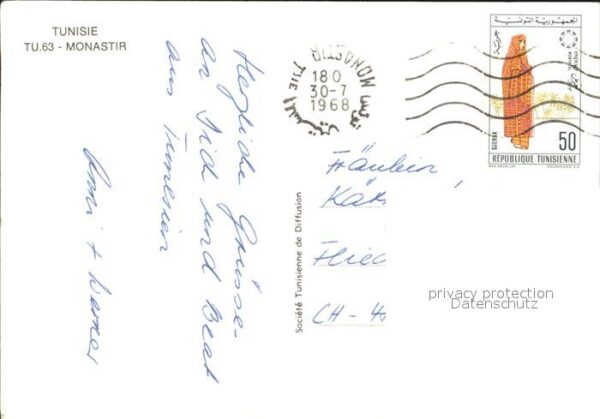 TUNISIE
TU.63 - MONASTIR
Herzliche Grüsse
an Dich und Beat
aus Tunesien
Omi + Werner
Société Tunisienne de Diffusion
MONASTIR
180
30-7
1968
الجمهورية التونسية
DJERBA
50
REPUBLIQUE TUNISIENNE
Fräulein,
Kät
Flie
CH - 40
privacy protection
Datenschutz